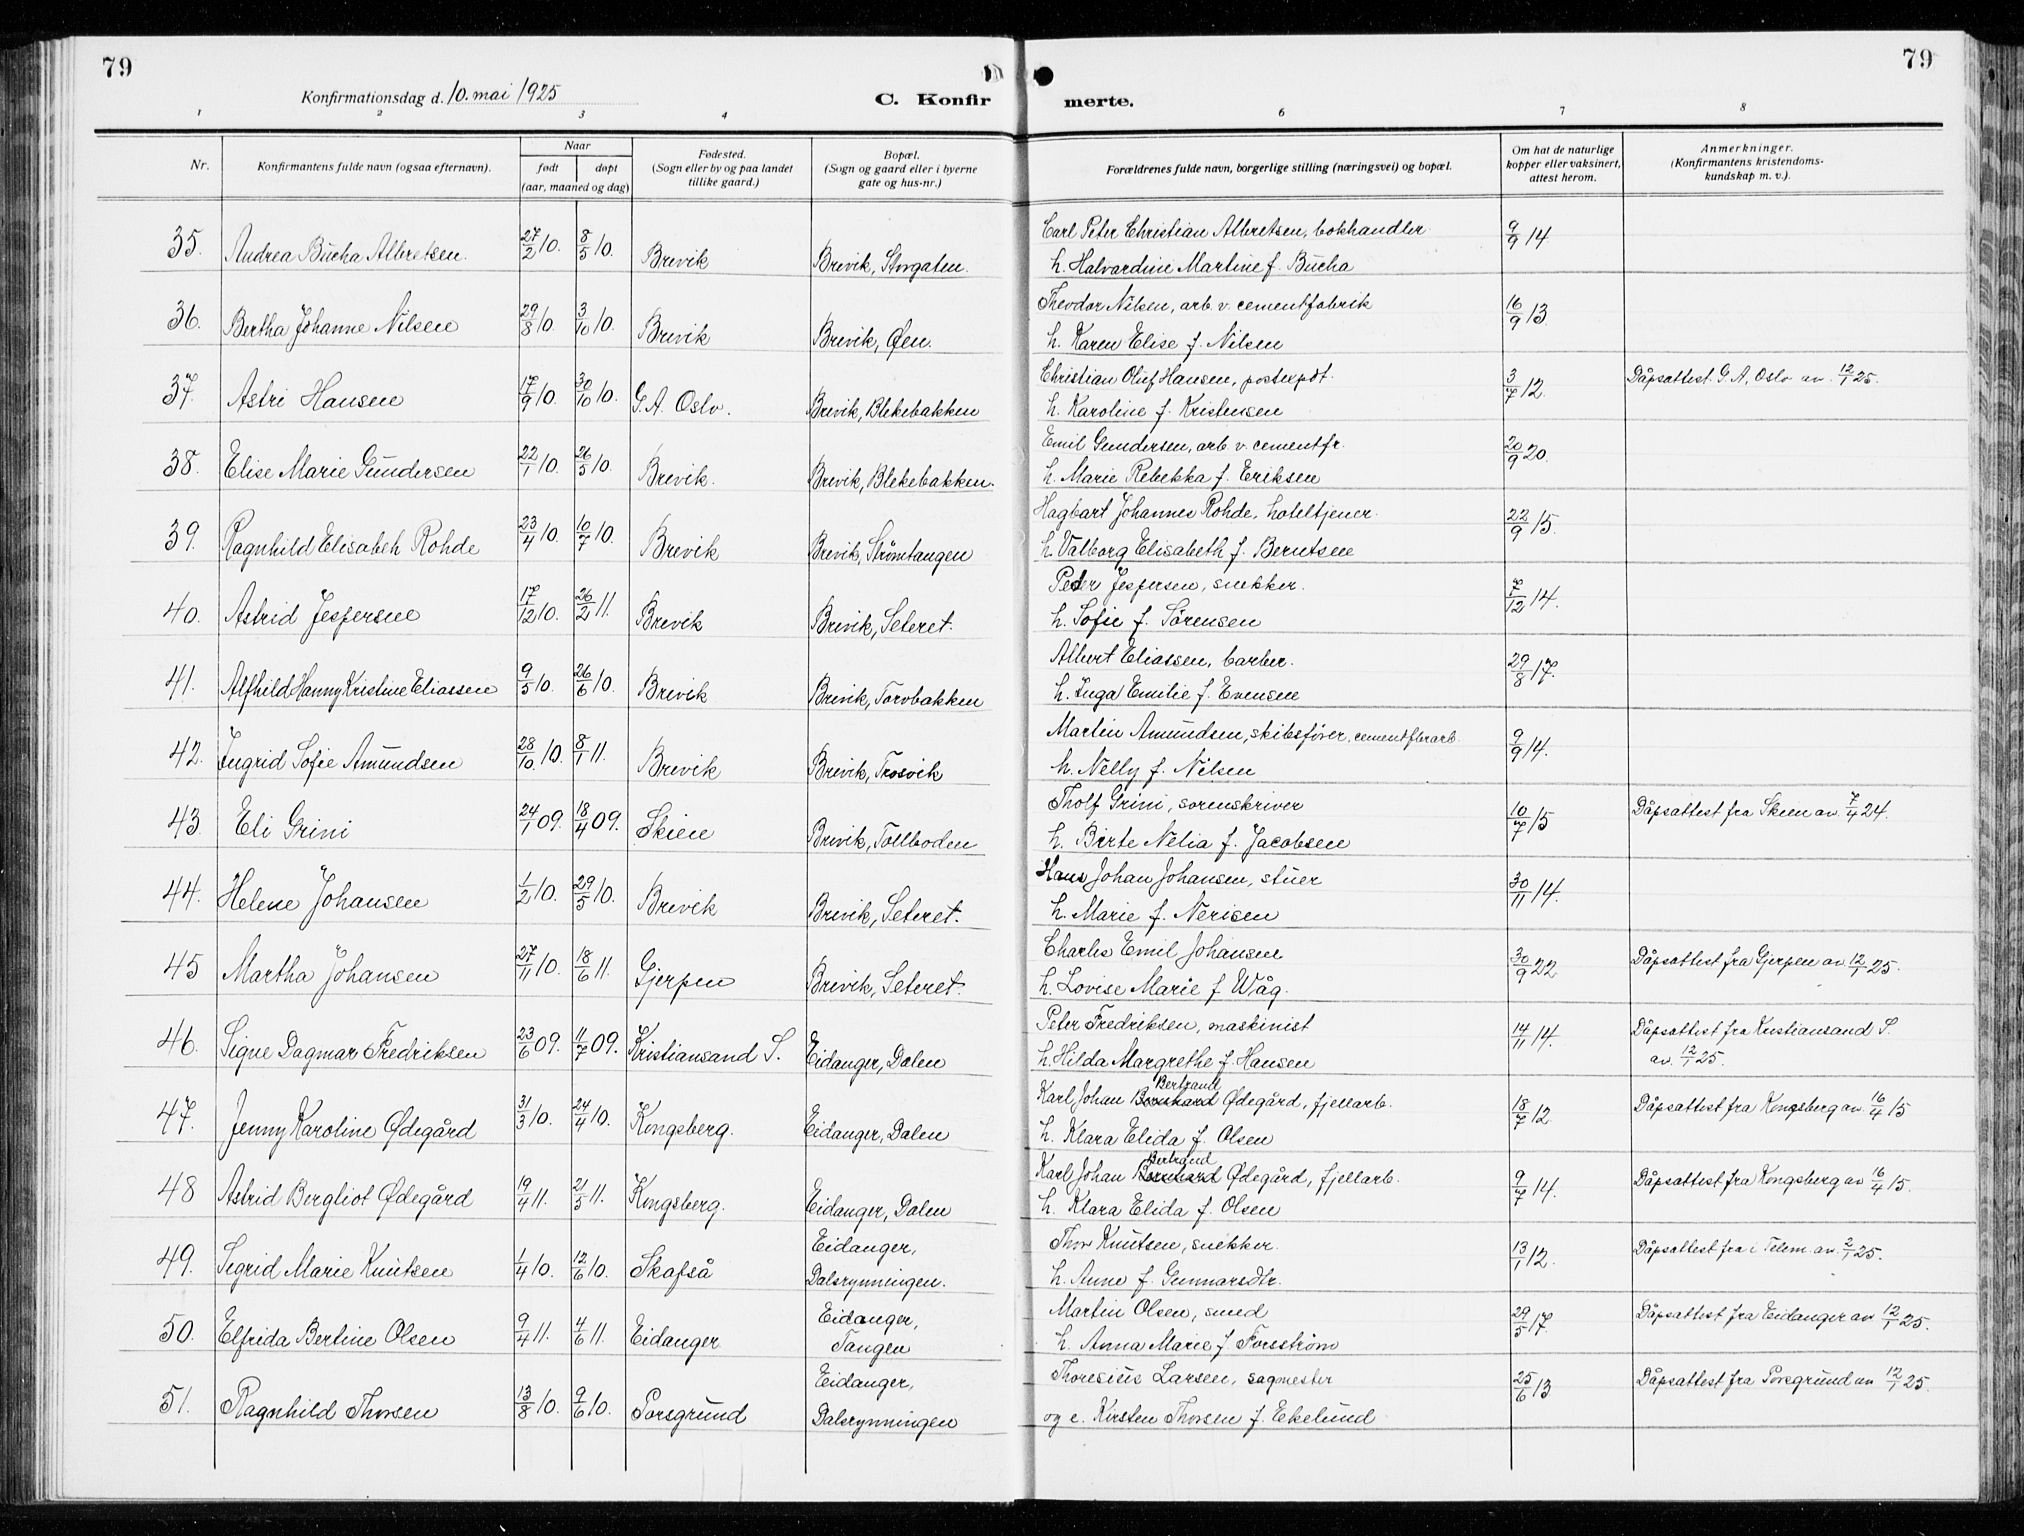 79
79
Konfirmationsdag d. 10. mai 1925
C. Konfir merte.
1 2 3 4 6 7 8
Nr.
Konfirmantens fulde navn (ogsaa efternavn).
Naar
født døpt
(aar, maaned og dag)
Fødested.
(Sogn eller by og paa landet
tillike gaard.)
Bopæl.
(Sogn og gaard eller i byerne
gate og hus-nr.)
Forældrenes fulde navn, borgerlige stilling (næringsvei) og bopæl.
Om hat de naturlige
kopper eller vaksinert,
attest herom.
Anmerkninger.
(Konfirmantens kristendoms-
kundskap m. v.).
35. Andrea Bucha Albretsen. 27/2 10. 8/5 10. Brevik Brevik, Storgaten. Carl Peter Christian Albretsen, bokhandler 9/9 14
h. Halvardine Martine f. Bucha
36. Bertha Johanne Nilsen 29/8 10. 3/10 10. Brevik Brevik, Øen. Theodor Nilsen, arb. v. cementfabrik 16/9 13
h. Karen Elise f. Nilsen
37. Astri Hansen 17/9 10. 30/10 10. G. A. Oslo. Brevik, Blekebakken Christian Oluf Hansen, postexpdt. 3/7 12. Dåpsattest G. A. Oslo av 12/1 25.
h. Karoline f. Kristensen
38. Elise Marie Gundersen 22/1 10. 26/5 10. Brevik. Brevik, Blekebakken. Emil Gundersen, arb. v. cementfr. 20/9 20.
h. Marie Rebekka f. Eriksen
39. Ragnhild Elisabeh Rohde 23/4 10. 10/7 10. Brevik Brevik, Strømtangen Hagbart Johannes Rohde, hoteltjener. 22/9 15.
h. Valborg Elisabeth f. Berntsen
40. Astrid Jespersen 17/12 10. 26/2 11. Brevik Brevik, Seteret. Peder Jespersen, snekker. 7/12 14.
h. Sofie f. Sørensen
41. Alfhild Hanny Kristine Eliassen 9/5 10. 26/6 10. Brevik Brevik, Torvbakken Albert Eliassen, barber. 29/8 17.
h. Inga Emilie f. Evensen
42. Ingrid Sofie Amundsen 28/10 10. 8/1 11. Brevik Brevik, Trosvik Martin Amundsen, skibsfører, cementfbrarb. 9/9 14.
h. Nelly f. Nilsen
43. Eli Grini 24/1 09. 18/4 09. Skien Brevik, Tollboden Tholf Grini, sorenskriver 10/7 15 Dåpsattest fra Skien av 7/4 24.
h. Birte Nelia f. Jacobsen
44. Helene Johansen 1/2 10. 29/5 10. Brevik Brevik, Seteret. Hans Johan Johansen, stuer 30/11 14.
h. Marie f. Nerisen
45 Martha Johansen 27/11 10. 18/6 11. Gjerpen Brevik, Seteret. Charles Emil Johansen 30/9 22 Dåpsattest fra Gjerpen av 12/1 25.
h. Lovise Marie f Wåg.
46. Signe Dagmar Fredriksen 23/6 09. 11/7 09. Kristiansand S. Eidanger, Dalen Peter Fredriksen, maskinist 14/11 14. Dåpsattest fra Kristiansand S.
h. Hilda Margrethe f. Hansen av. 12/1 25.
Bertrand
47. Jenny Karoline Ødegård 31/3 10. 24/4 10. Kongsberg. Eidanger, Dalen Karl Johan Bernhard Ødegård, fjellarb. 18/7 12. Dåpsattest fra Kongsberg av 16/4 15
h. Klara Elida f. Olsen
Bertrand
48 Astrid Bergliot Ødegård 19/4 11. 21/5 11. Kongsberg. Eidanger, Dalen Karl Johan Bernhard Ødegård, fjellarb. 9/7 14. Dåpsattest fra Kongsberg av 16/4 15.
h. Klara Elida f. Olsen
49. Sigrid Marie Knutsen 1/4 10. 12/6 10. Skafså Eidanger, Thor Knutsen, snekker. 13/1 12. Dåpsattest fra i Telem. av 2/1 25.
Dalsrynningen. h. Anne f. Gunnarsdtr.
50. Elfrida Bertine Olsen 9/4 11. 4/6 11. Eidanger Eidanger, Martin Olsen, smed 29/5 17. Dåpsattest fra Eidanger av 12/1 25.
Tangen h. Anna Marie f. Forsström
51. Ragnhild Thorsen 13/8 10. 9/6 10. Porsgrund Eidanger, Thoresius Larsen, sagmester 25/6 13 Dåpsattest fra Porsgrund av 12/1 25.
Dalsrynningen og e. Kirsten Thorsen f. Ekelund